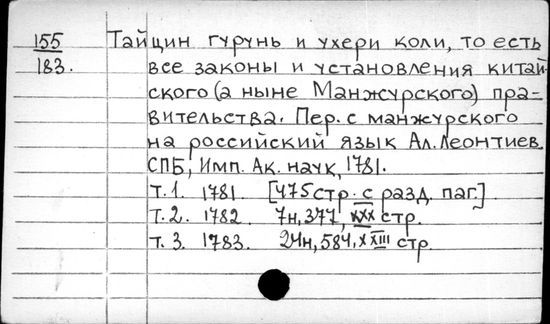 155 Тайцин гурунь и ухери коли, то есть
183. все законы и установления китай-
ского (а ныне Манжурского) пра-
вительства. Пер. с манжурского
на российский язык Ал. Леонтиев.
СПБ, Имп. Ак. наук, 1781.
т. 1. 1781 [475 стр. с разд. паг.]
т. 2. 1782 7н, 377, XXX стр.
т. 3. 1783. 24н, 584, XXIII стр.